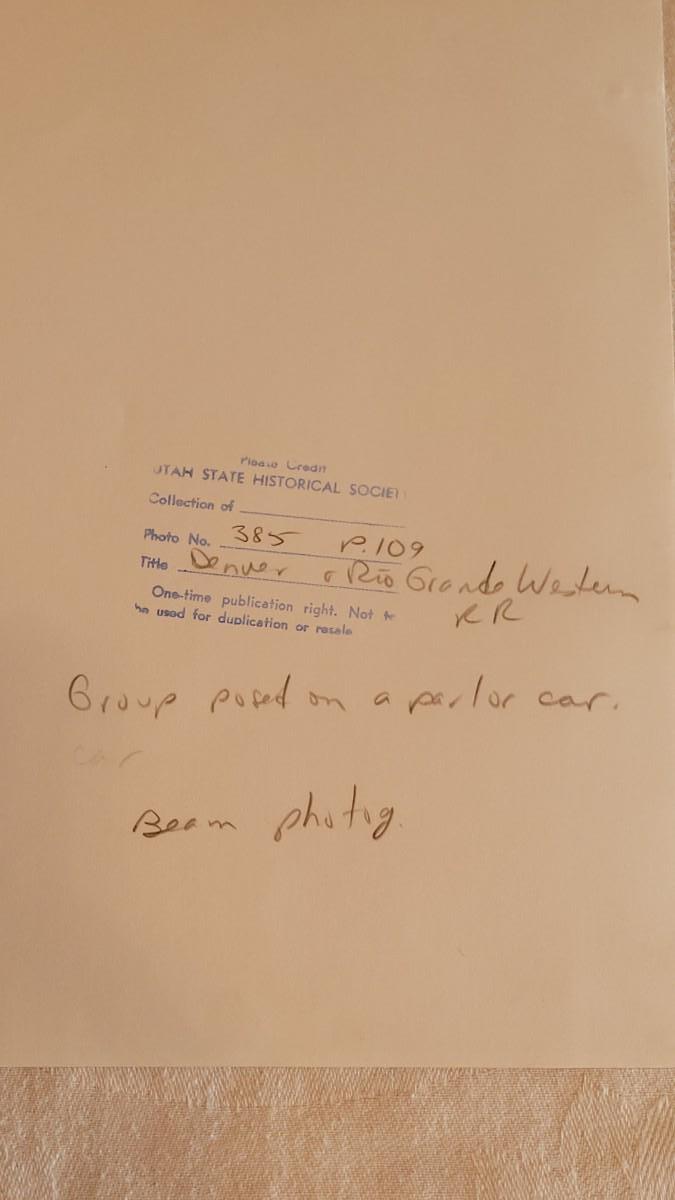 Please Credit
UTAH STATE HISTORICAL SOCIET
Collection of
Photo No. 385 P.109
Title Denver & Rio Grande Western
RR
One-time publication right. Not to
be used for duplication or resale
Group posed on a parlor car.
car
Beam photog.